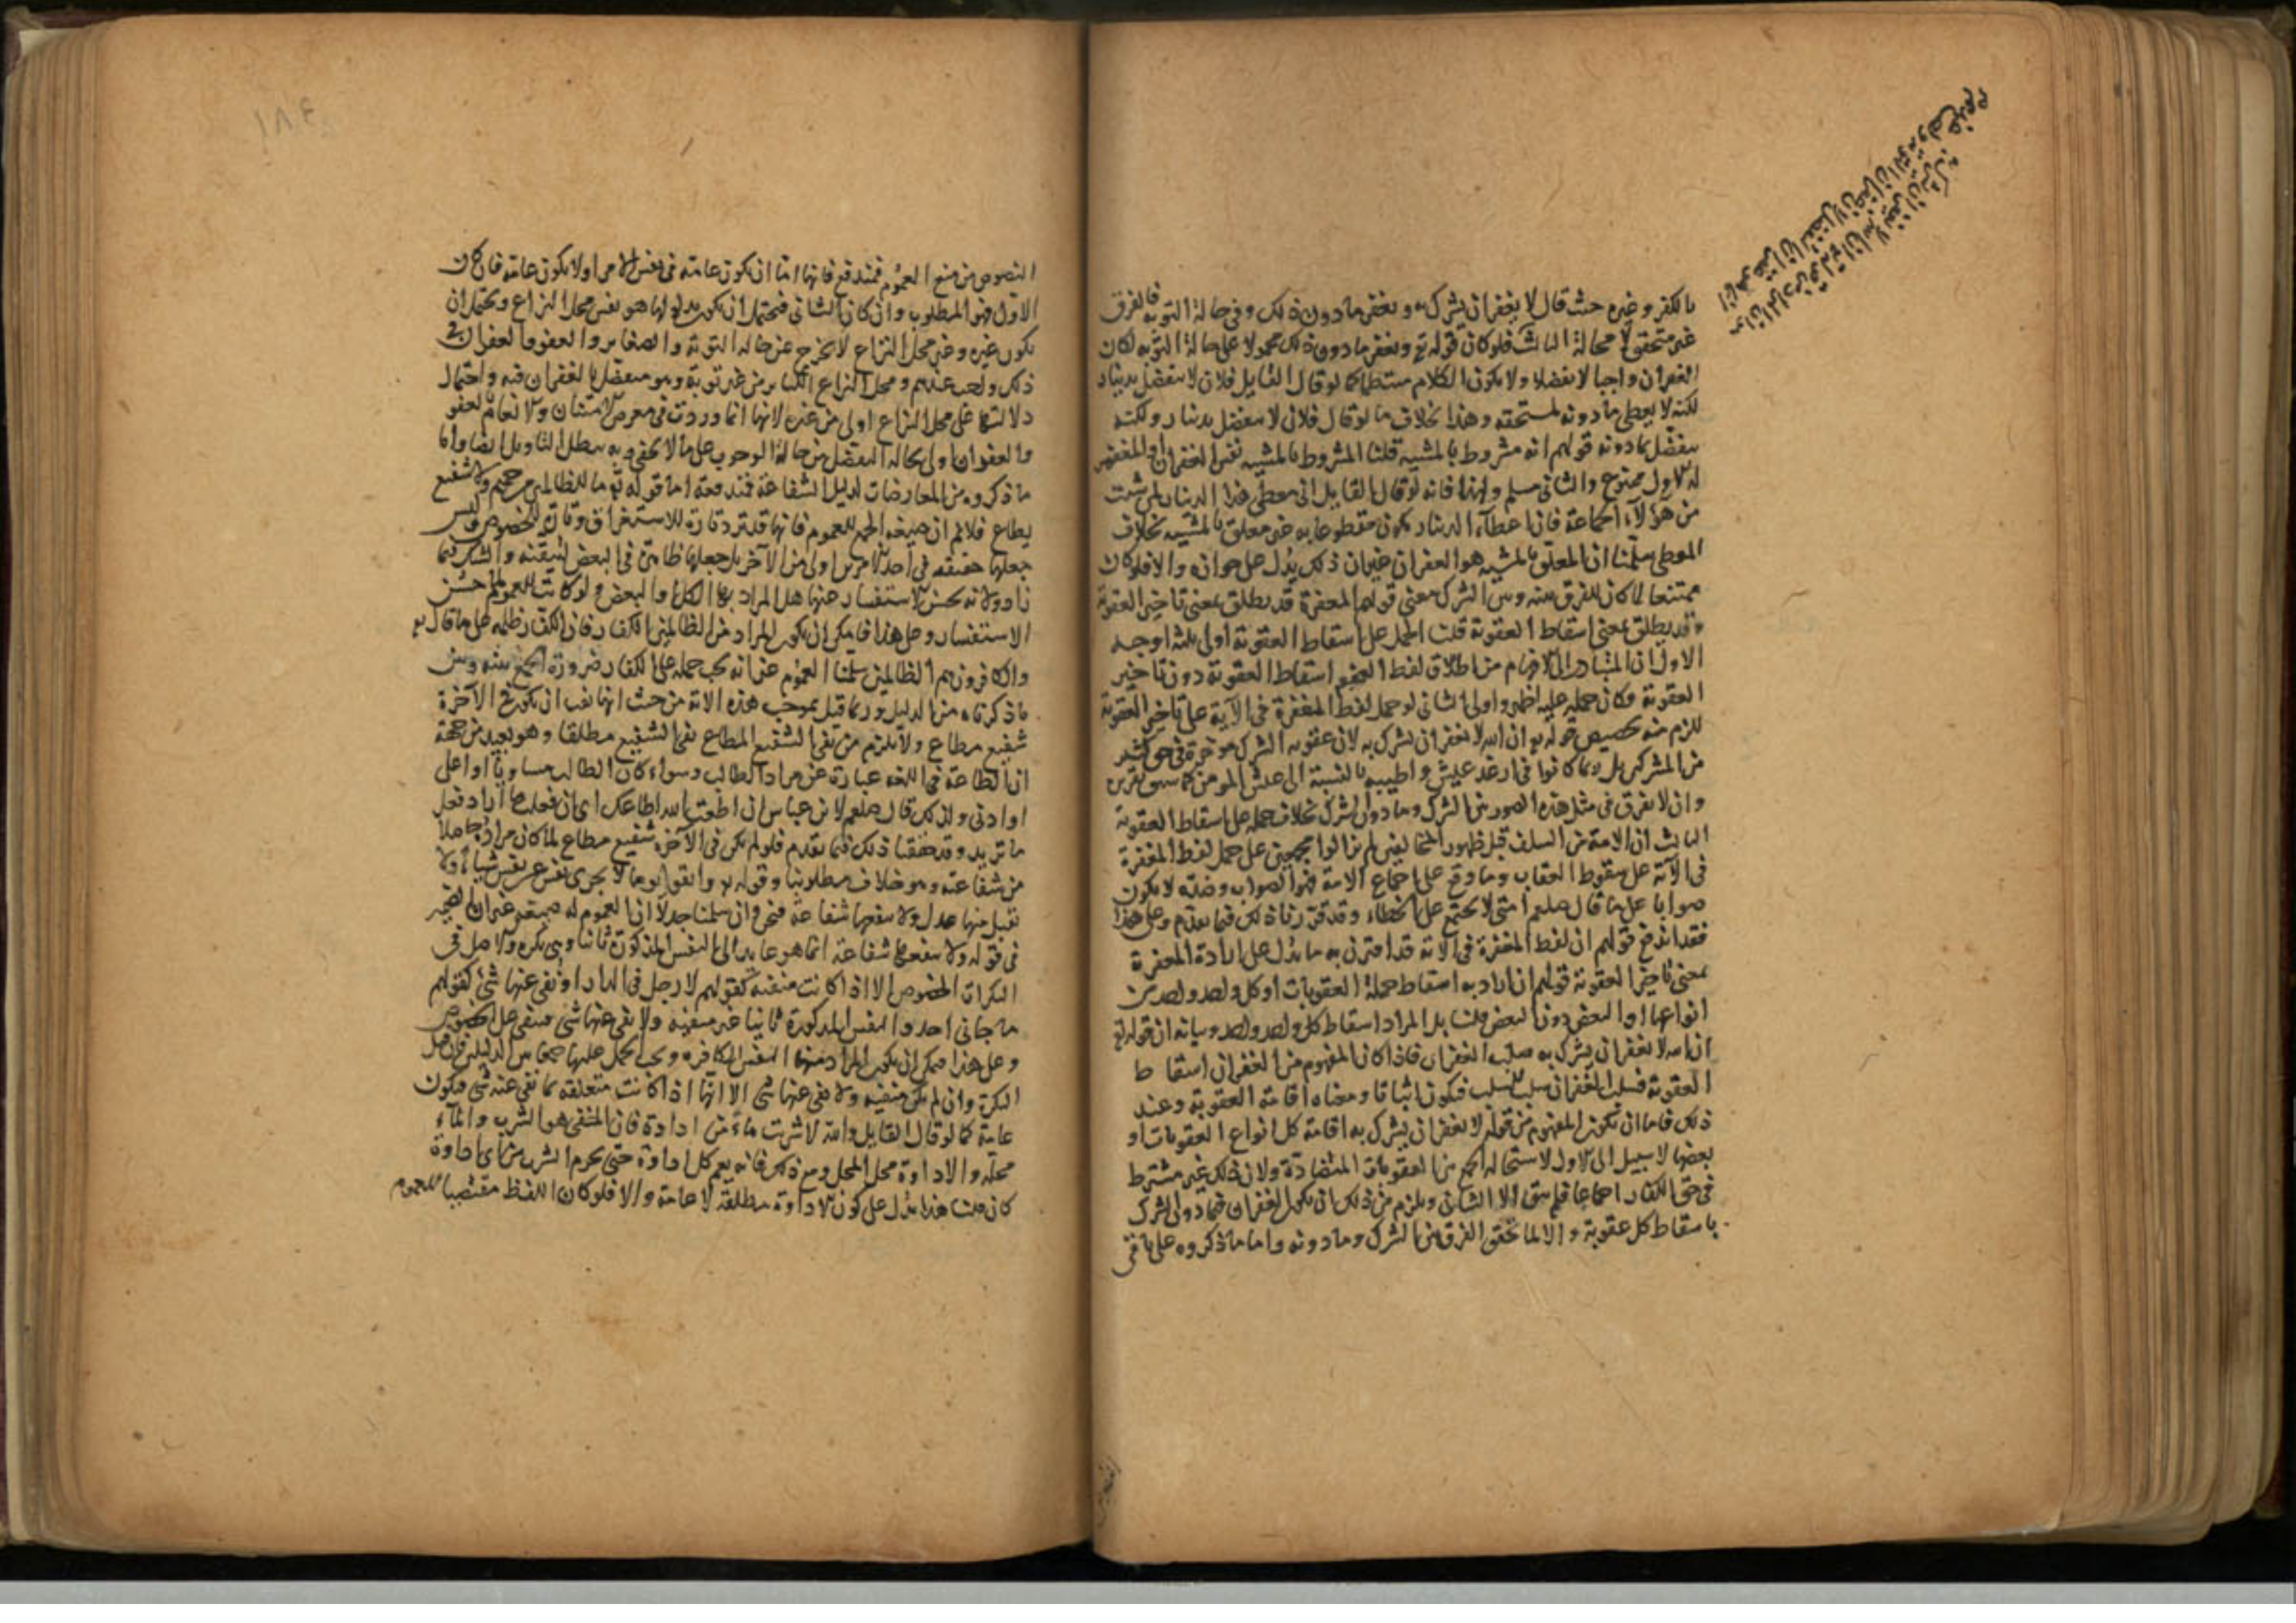 بالكفر وغيره حيث قال لا يغفر ان يشرك به ويغفر ما دون ذلك وفي حالة التوبة فالفرق
غير متحقق لا محالة الثالث فلو كان قوله تع ويغفر ما دون ذلك محمولا على حالة التوبة لكان
الغفران واجبا لا تفضلا ولا يكون الكلام منتظما كما لو قال القايل فلان لا يتفضل بدينار
لكنه لا يعطي ما دونه لمستحقه وهذا بخلاف ما لو قال فلان لا يتفضل بدينار ولكنه
يتفضل بما دونه قولهم انه مشروط بالمشية قلنا المشروط بالمشية نفس الغفران او المغفور
له الاول ممنوع والثاني مسلم ولهذا فانه لو قال القايل اني معطي هذا الدينار لمن شيت
من هؤلآء الجماعة فان اعطآء الدينار يكون مقطوعا به غير معلق بالمشية بخلاف
المعطى سلمنا ان المعلق بالمشية هو الغفران غير ان ذلك يدل على جوازه والا فلو كان
ممتنعا لما كان للفرق بينه وبين الشرك معنى قولهم المغفرة قد يطلق بمعنى تاخير العقوبة
وقد يطلق بمعنى اسقاط العقوبة قلنا الحمل على اسقاط العقوبة اولى بثلثة اوجه
الاول ان المتبادر الى الافهام من اطلاق لفظ اسقاط العقوبة دون تاخير
العقوبة فكان حمله عليه اظهر واولى الثاني لو حمل لفظ المغفرة في الآية على تاخير العقوبة
للزم منه تخصيص قوله تع ان الله لا يغفر ان يشرك به لان عقوبة الشرك مؤخرة في حق كثير
من المشركين بل ربما كانوا في ارغد عيش واطيبه بالنسبة الى عيش المومن كما سبق تقريره
وان لا نفرق في مثل هذه الصور بين الشرك وما دون الشرك بخلاف حمله على اسقاط العقوبة
الثالث ان الامة من السلف قبل ظهور المخالفين لم يزالوا مجمعين على حمل لفظ المغفرة
في الآية على سقوط العقاب وما وقع عليه اجماع الامة فهو الصواب وضده لا يكون
صوابا على ما قال صلعم امتي لا تجتمع على الخطاء وقد قررنا ذلك فيما تقدم وعلى هذا
فقد اندفع قولهم ان لفظ المغفرة في الآية قد اقترن به ما يدل على ارادة المغفرة
بمعنى تاخير العقوبة قولهم ان اراد به اسقاط جملة العقوبات او كل واحد واحد من
انواعها او البعض دون البعض قلنا بل المراد اسقاط كل واحد واحد وبيانه ان قوله تع
ان الله لا يغفر ان يشرك به سلب الغفران فاذا كان المفهوم من الغفران اسقاط
العقوبة فسلب الغفران سلب السلب فيكون اثباتا ومعناه اقامة العقوبة وعند
ذلك فاما ان يكون المفهوم من قوله لا يغفر ان يشرك به اقامة كل انواع العقوبات او
بعضها لا سبيل الى الاول لاستحالة الجمع بين العقوبات المتضادة ولان ذلك غير مشترط
في حق الكفار اجماعا فلم يبق الا الثاني ويلزم من ذلك ان يكون الغفران فيما دون الشرك
باسقاط كل عقوبة والا لما تحقق الفرق بين الشرك وما دونه واما ما ذكروه على باقي
النصوص من منع العموم فمندفع فانها اما ان يكون عامة في نفس الامر او لا يكون عامة فان كان
الاول فهو المطلوب وان كان الثاني فيحتمل ان يكون مدلولها هو نفس محل النزاع ويحتمل ان
يكون غيره وغير محل النزاع لا يخرج عن حالة التوبة والصغاير والعفو والغفران في
ذلك واجب عندهم ومحل النزاع الكباير من غير توبة وهو متفضل بالغفران فيه واحتمال
دلالتها على محل النزاع اولى من غيره لانها انما وردت في معرض الامتنان والانعام بالعفو
والغفران اولى بحالة التفضل من حالة الوجوب على ما لا يخفى وبه يبطل التاويل ايضا واما
ما ذكروه من المعارضات لدليل الشفاعة فمندفعة اما قوله تع ما للظالمين من حميم ولا شفيع
يطاع فلانم ان صيغة الجمع للعموم فانها قد ترد تارة للاستغراق وتارة للخصوص وليس
جعلها حقيقة في احد الامرين اولى من الآخر بل جعلها ظاهرة في البعض لتيقنه والشك فيما
زاد ولانه يحسن الاستفسار عنها هل المراد بها الكل او البعض ولو كانت للعموم لما حسن
الاستفسار وعلى هذا فامكن ان يكون المراد من الظالمين الكفار فان الكفار ظلمة على ما قال تع
والكافرون هم الظالمون سلمنا العموم غير انه يجب حمله على الكفار ضرورة الجمع بينه وبين
ما ذكرناه من الدليل وربما قيل بموجب هذه الآية من حيث انها نفت ان يكون في الآخرة
شفيع مطاع ولا يلزم من نفي الشفيع المطاع نفي الشفيع مطلقا وهو بعيد من جهة
ان الطاعة في اللغة عبارة عن مراد الطالب وسواء كان الطالب مساويا او اعلى
او ادنى ولذلك قال صلعم لابن عباس ان اطعت الله اطاعك اي ان فعلت ما اراد فعل
ما تريد وقد حققنا ذلك فيما تقدم فلو لم يكن في الآخرة شفيع مطاع لما كان مراده حاصلا
من شفاعته وهو خلاف مطلوبنا وقوله تع واتقوا يوما لا يجزى نفس عن نفس شيا ولا
يقبل منها عدل ولا ينفعها شفاعة فنحن وان سلمنا جدلا ان العموم له صيغة غير ان الضمير
في قوله ولا ينفعها شفاعة انما هو عايد الى النفس المذكورة ثانيا وهي نكرة والاصل في
النكرات الخصوص الا اذا كانت منفية كقولهم لا رجل في الدار او نفي عنها شئ كقولهم
ما جاني احد والنفس المذكورة ثانيا غير منفية ولا نفي عنها شئ فبقي على الخصوص
وعلى هذا فيمكن ان يكون المراد منها النفس الكافرة ويجب الحمل عليها جمعا بين الدليلين فان قيل
النكرة وان لم يكن منفية ولا نفي عنها شئ الا انها اذا كانت متعلقة بما نفي عنه شئ فيكون
عامة كما لو قال القايل والله لا شربت ماء من اداوة فان المنفي هو الشرب والمآء
محله والاداوة محل المحل ومع ذلك فانه يعم كل اداوة حتى يحرم الشرب من اي اداوة
كان قلنا هذا يدل على كون الاداوة مطلقة لا عامة والا فلو كان اللفظ مقتضيا للعموم